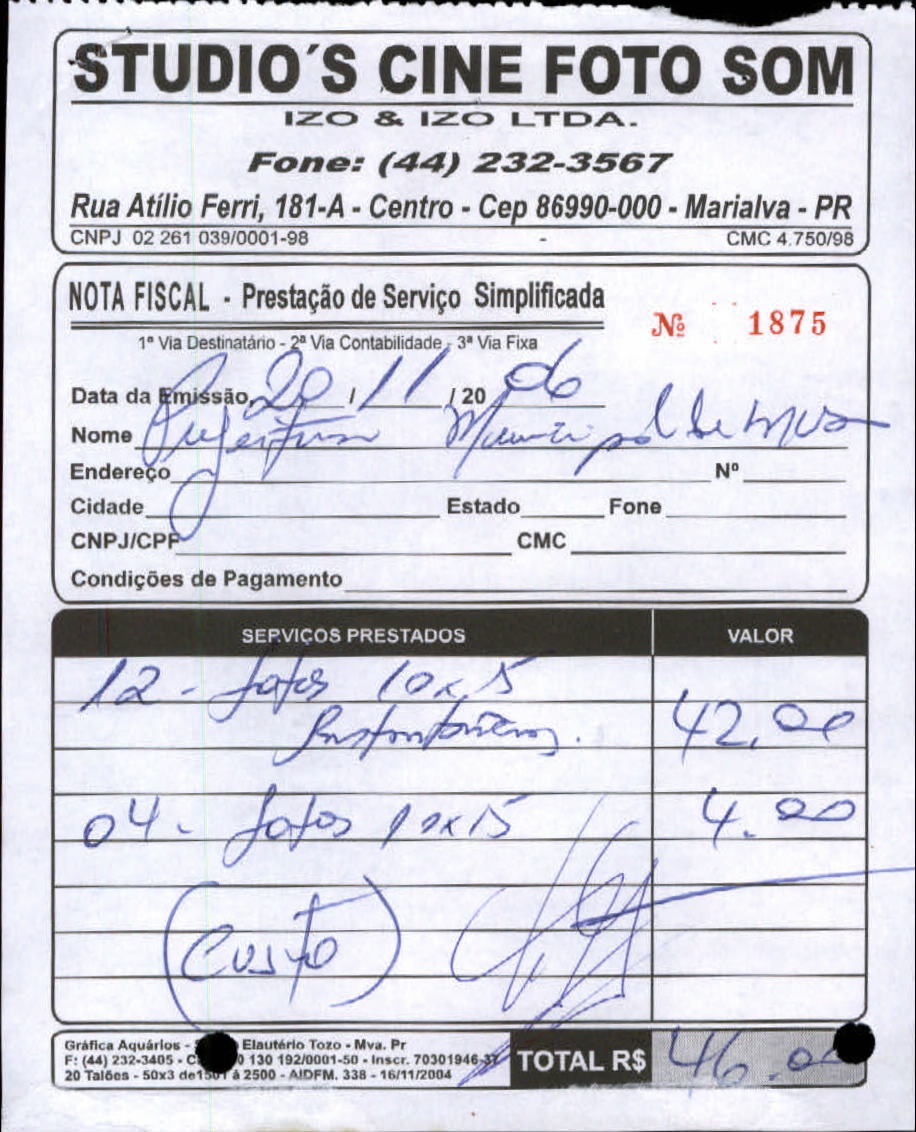 STUDIO´S CINE FOTO SOM
IZO & IZO LTDA.
Fone: (44) 232-3567
Rua Atílio Ferri, 181-A - Centro - Cep 86990-000 - Marialva - PR
CNPJ 02 261 039/0001-98 - CMC 4.750/98
NOTA FISCAL - Prestação de Serviço Simplificada
Nº 1875
1ª Via Destinatário - 2ª Via Contabilidade - 3ª Via Fixa
Data da Emissão 20 / 11 / 20 06
Nome Prefeitura Municipal de Mva
Endereço Nº
Cidade Estado Fone
CNPJ/CPF CMC
Condições de Pagamento
SERVIÇOS PRESTADOS VALOR
12 - fotos 10x15
Instantâneas. 42,00
04 - fotos 10x15 4.00
(Custo)
Gráfica Aquários - Elautério Tozo - Mva. Pr
F: (44) 232-3405 - 130 192/0001-50 - Inscr. 70301946-37
20 Talões - 50x3 de 1501 à 2500 - AIDFM. 338 - 16/11/2004
TOTAL R$ 46.00